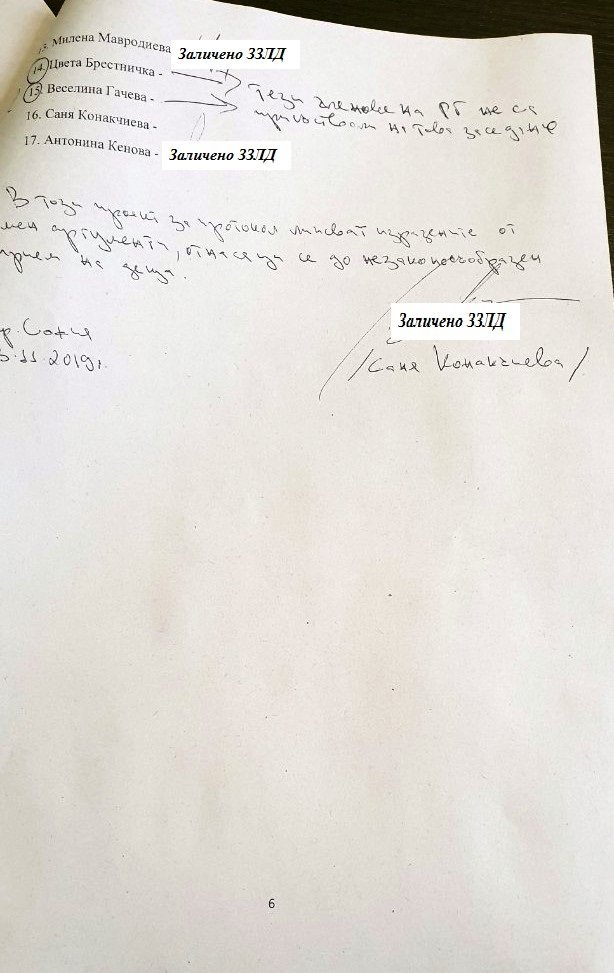 13. Милена Мавродиева Заличено ЗЗЛД
14. Цвета Брестничка -
15. Веселина Гачева -
Тези членове на РГ не са
присъствали на това заседание
16. Саня Конакчиева -
17. Антонина Кенова - Заличено ЗЗЛД
В този проект за протокол липсват изразените от
мен аргументи, отнасящи се до незаконосъобразен
прием на деца.
Заличено ЗЗЛД
гр. София
11.2019г.
/Саня Конакчиева/
6